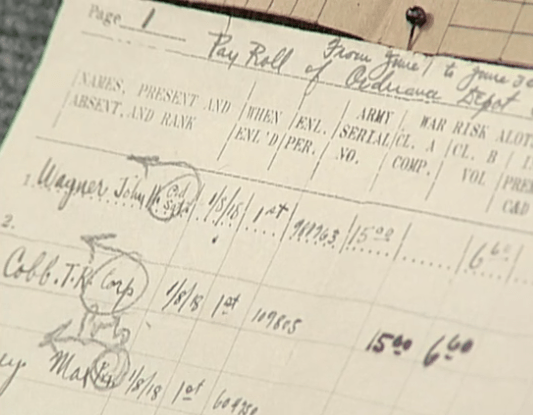 Page 1
From June 1 to June 30
Pay Roll of Ordnance Depot
NAMES, PRESENT AND ABSENT, AND RANK
WHEN ENL'D
ENL. PER.
ARMY SERIAL NO.
WAR RISK ALOT
CL. A COMP.
CL. B VOL
1. Wagner John 1/5/18 1st 15.00 6.60
2.
Cobb. T.R. Corp 1/8/18 1st 109805 15.00 6.60
1/8/18 1st